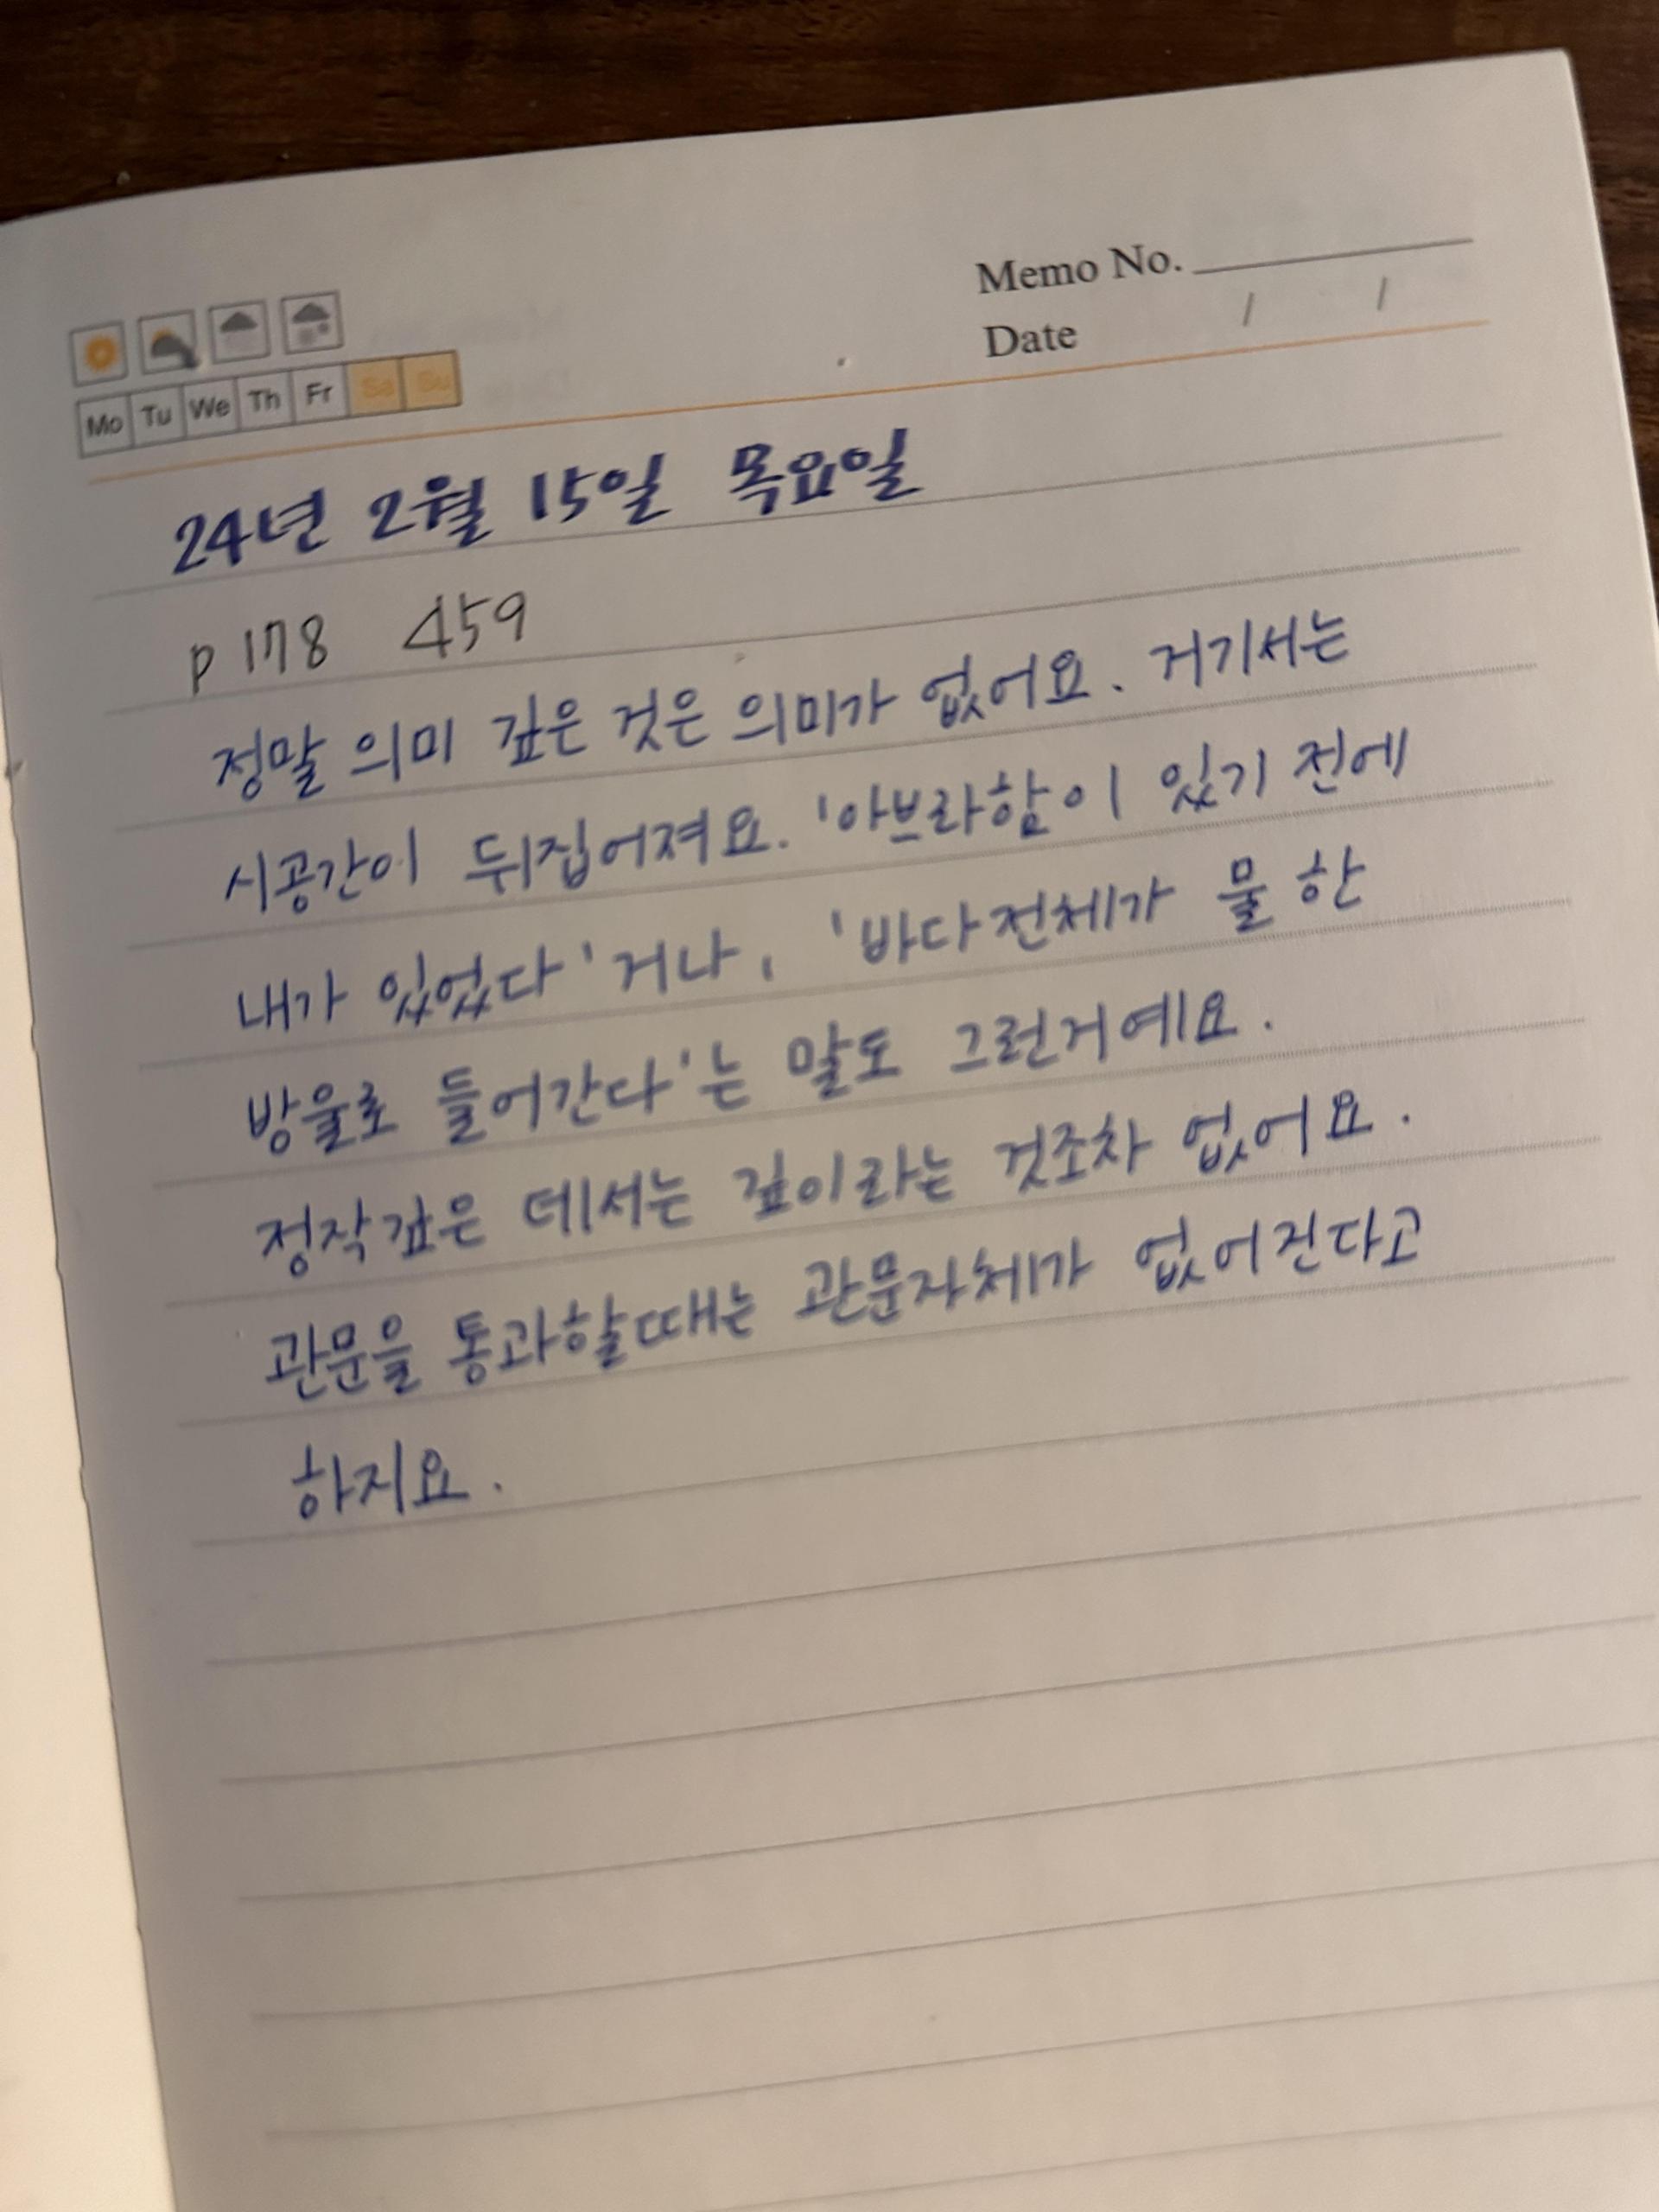 Memo No.
Date / /
Mo Tu We Th Fr Sa Su
24년 2월 15일 목요일
p 178 459
정말 의미 깊은 것은 의미가 없어요. 거기서는
시공간이 뒤집어져요. '아브라함이 있기 전에
내가 있었다' 거나, '바다전체가 물 한
방울로 들어간다'는 말도 그런거예요.
정작깊은 데서는 깊이라는 것조차 없어요.
관문을 통과할때는 관문자체가 없어진다고
하지요.